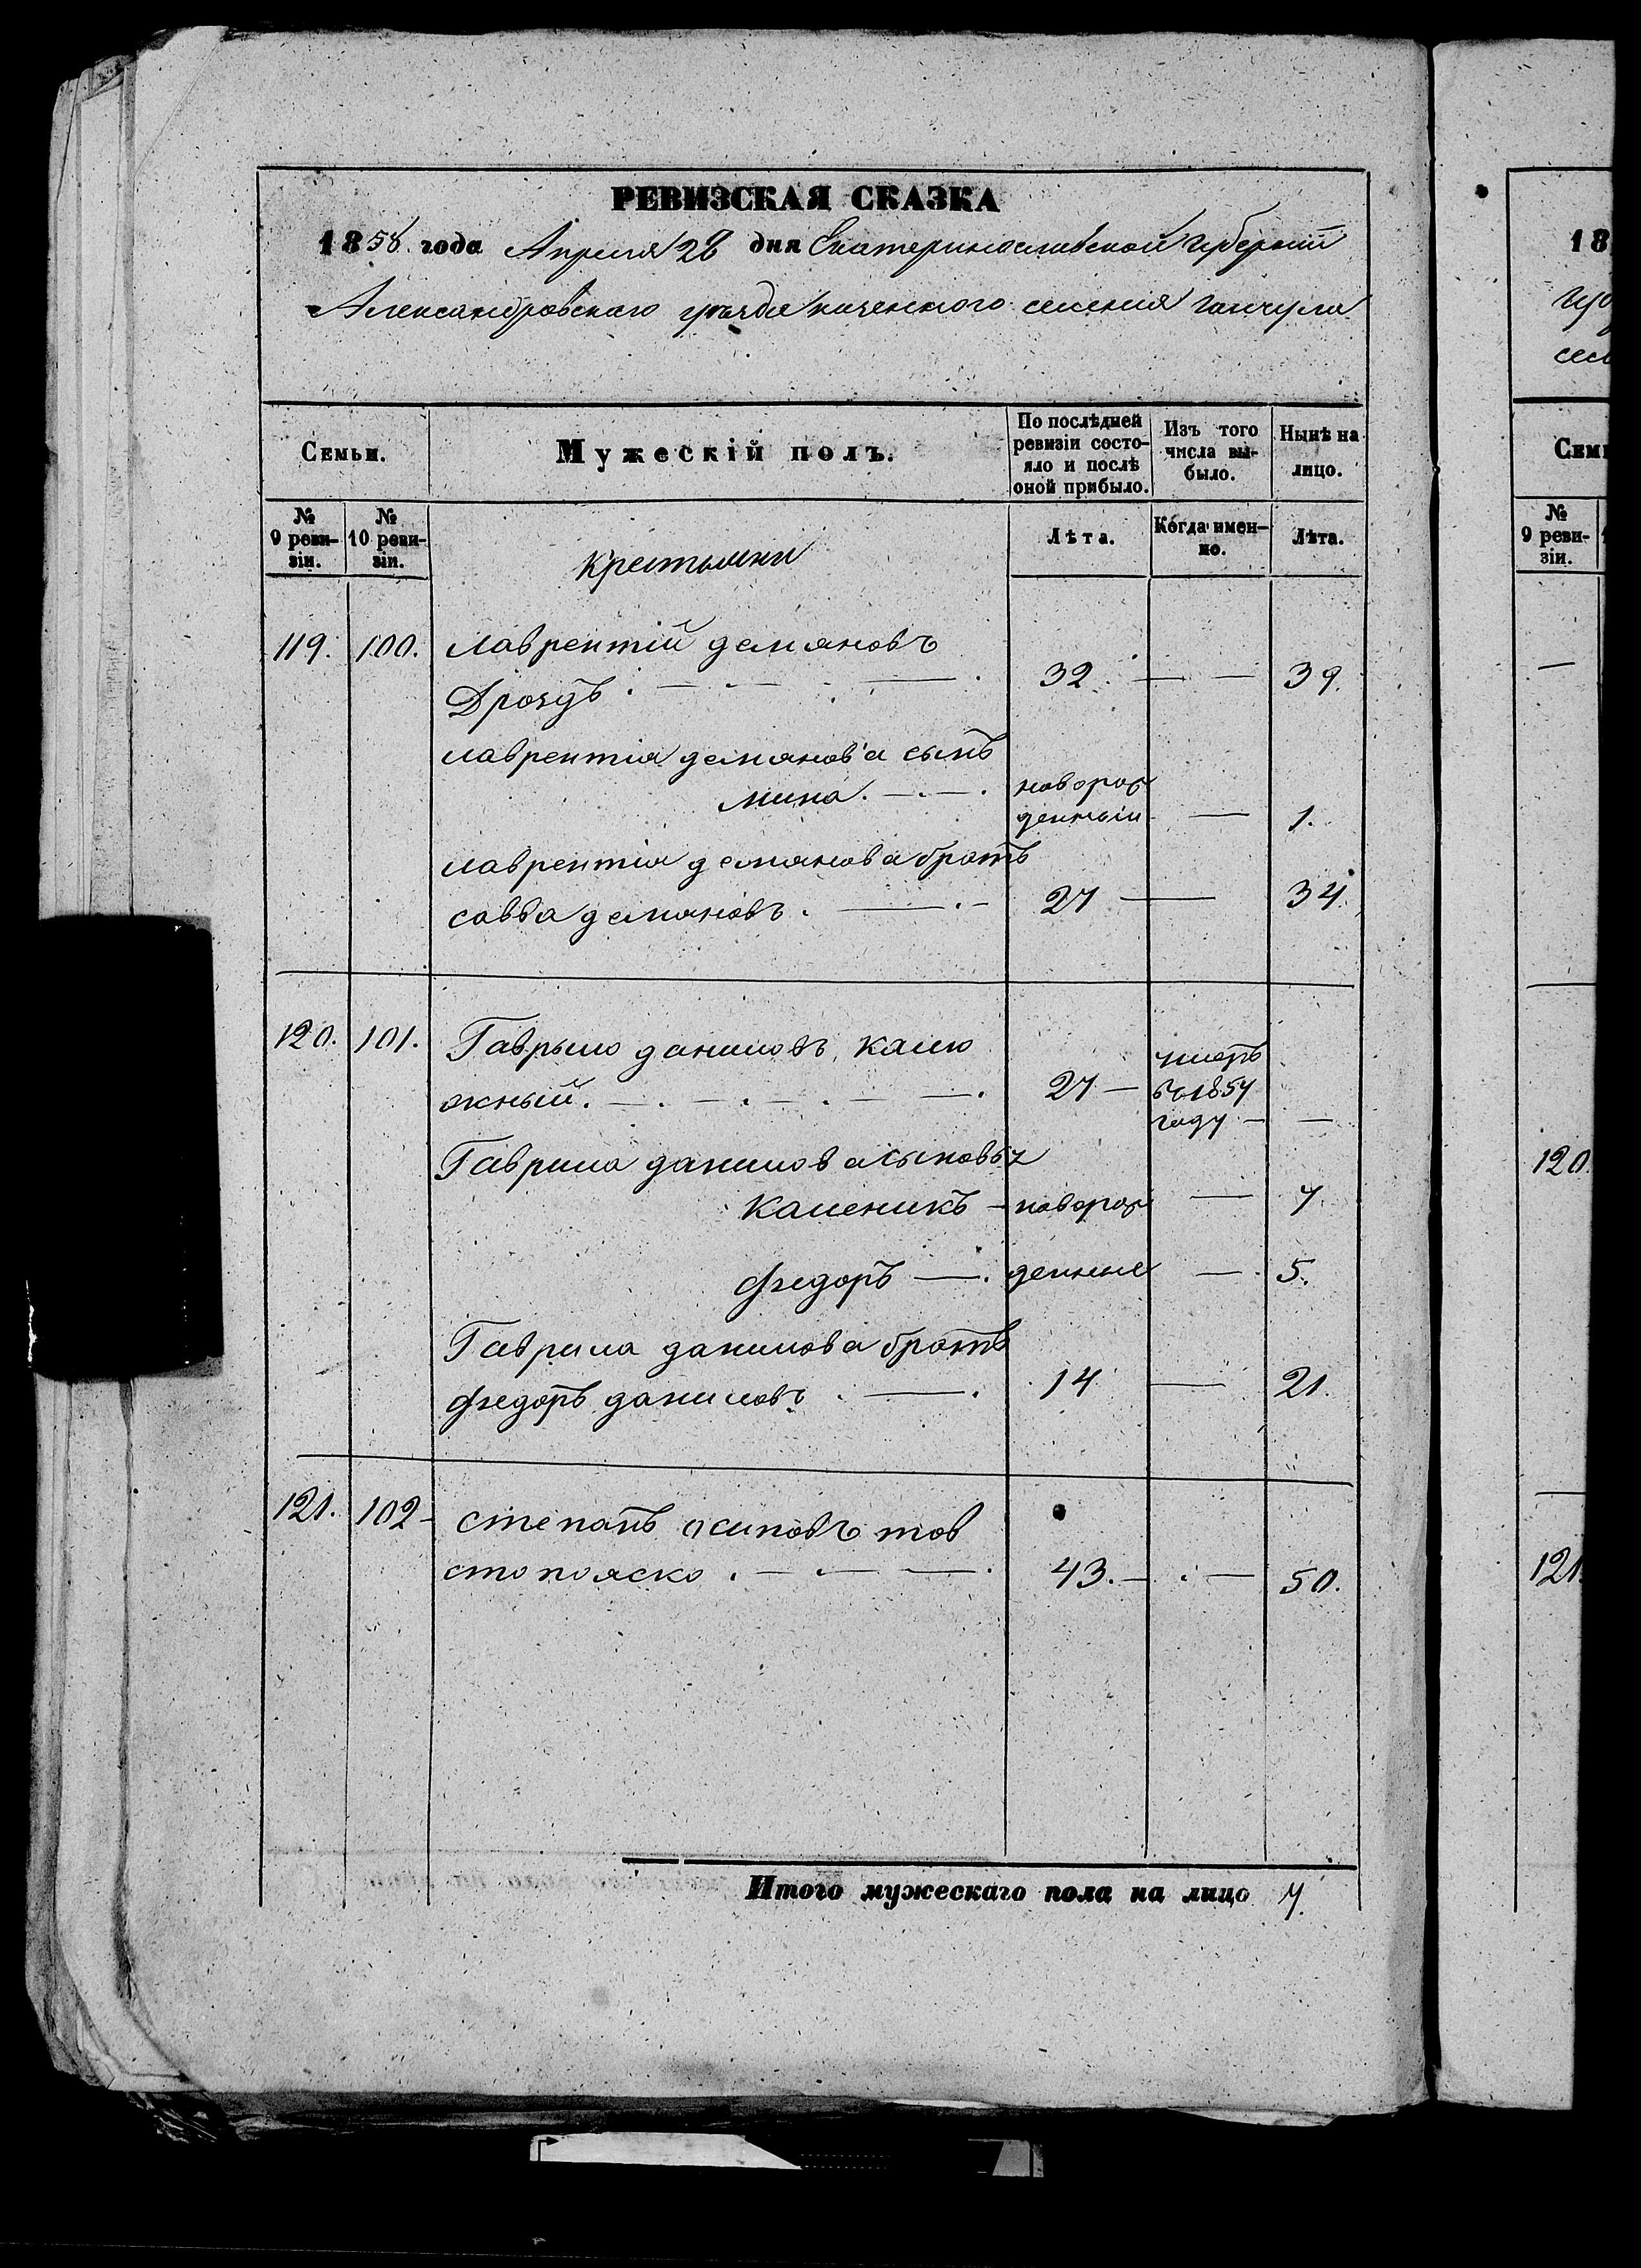 РЕВИЗСКАЯ СКАЗКА
1858 года Апреля 28 дня Екатеринославской губерніи
Александровскаго уезда казенного селения гайчула
Семьи.
Мужескій полъ.
По послѣдней ревизіи состояло и послѣ оной прибыло.
Изъ того числа выбыло.
Нынѣ на лицо.
№ 9 ревизіи.
№ 10 ревизіи.
крестьяни
Лѣта.
Когда именно.
Лѣта.
119. 100. лаврентій демяновъ
Дроздъ. 32. — — 39.
лаврентія демянов'а сынъ
мина. новорож
денный — 1.
лаврентія демянова братъ
савва демяновъ. 27 — 34.
120. 101. Гаврыло даниловъ калю
жный. 27 — умеръ
въ 1857
году — —
Гаврила данилова сыновья
Каленикъ — новорож — 7.
Фпедоръ —. денные — 5.
Гаврила данилова братъ
Фпедоръ даниловъ. 14 — 21.
121. 102 степанъ осиповъ тов
стопояско. 43. — 50.
Итого мужескаго пола на лицо 7.
18
сел
Сем
№ 9 ревизіи.
—
120.
121.